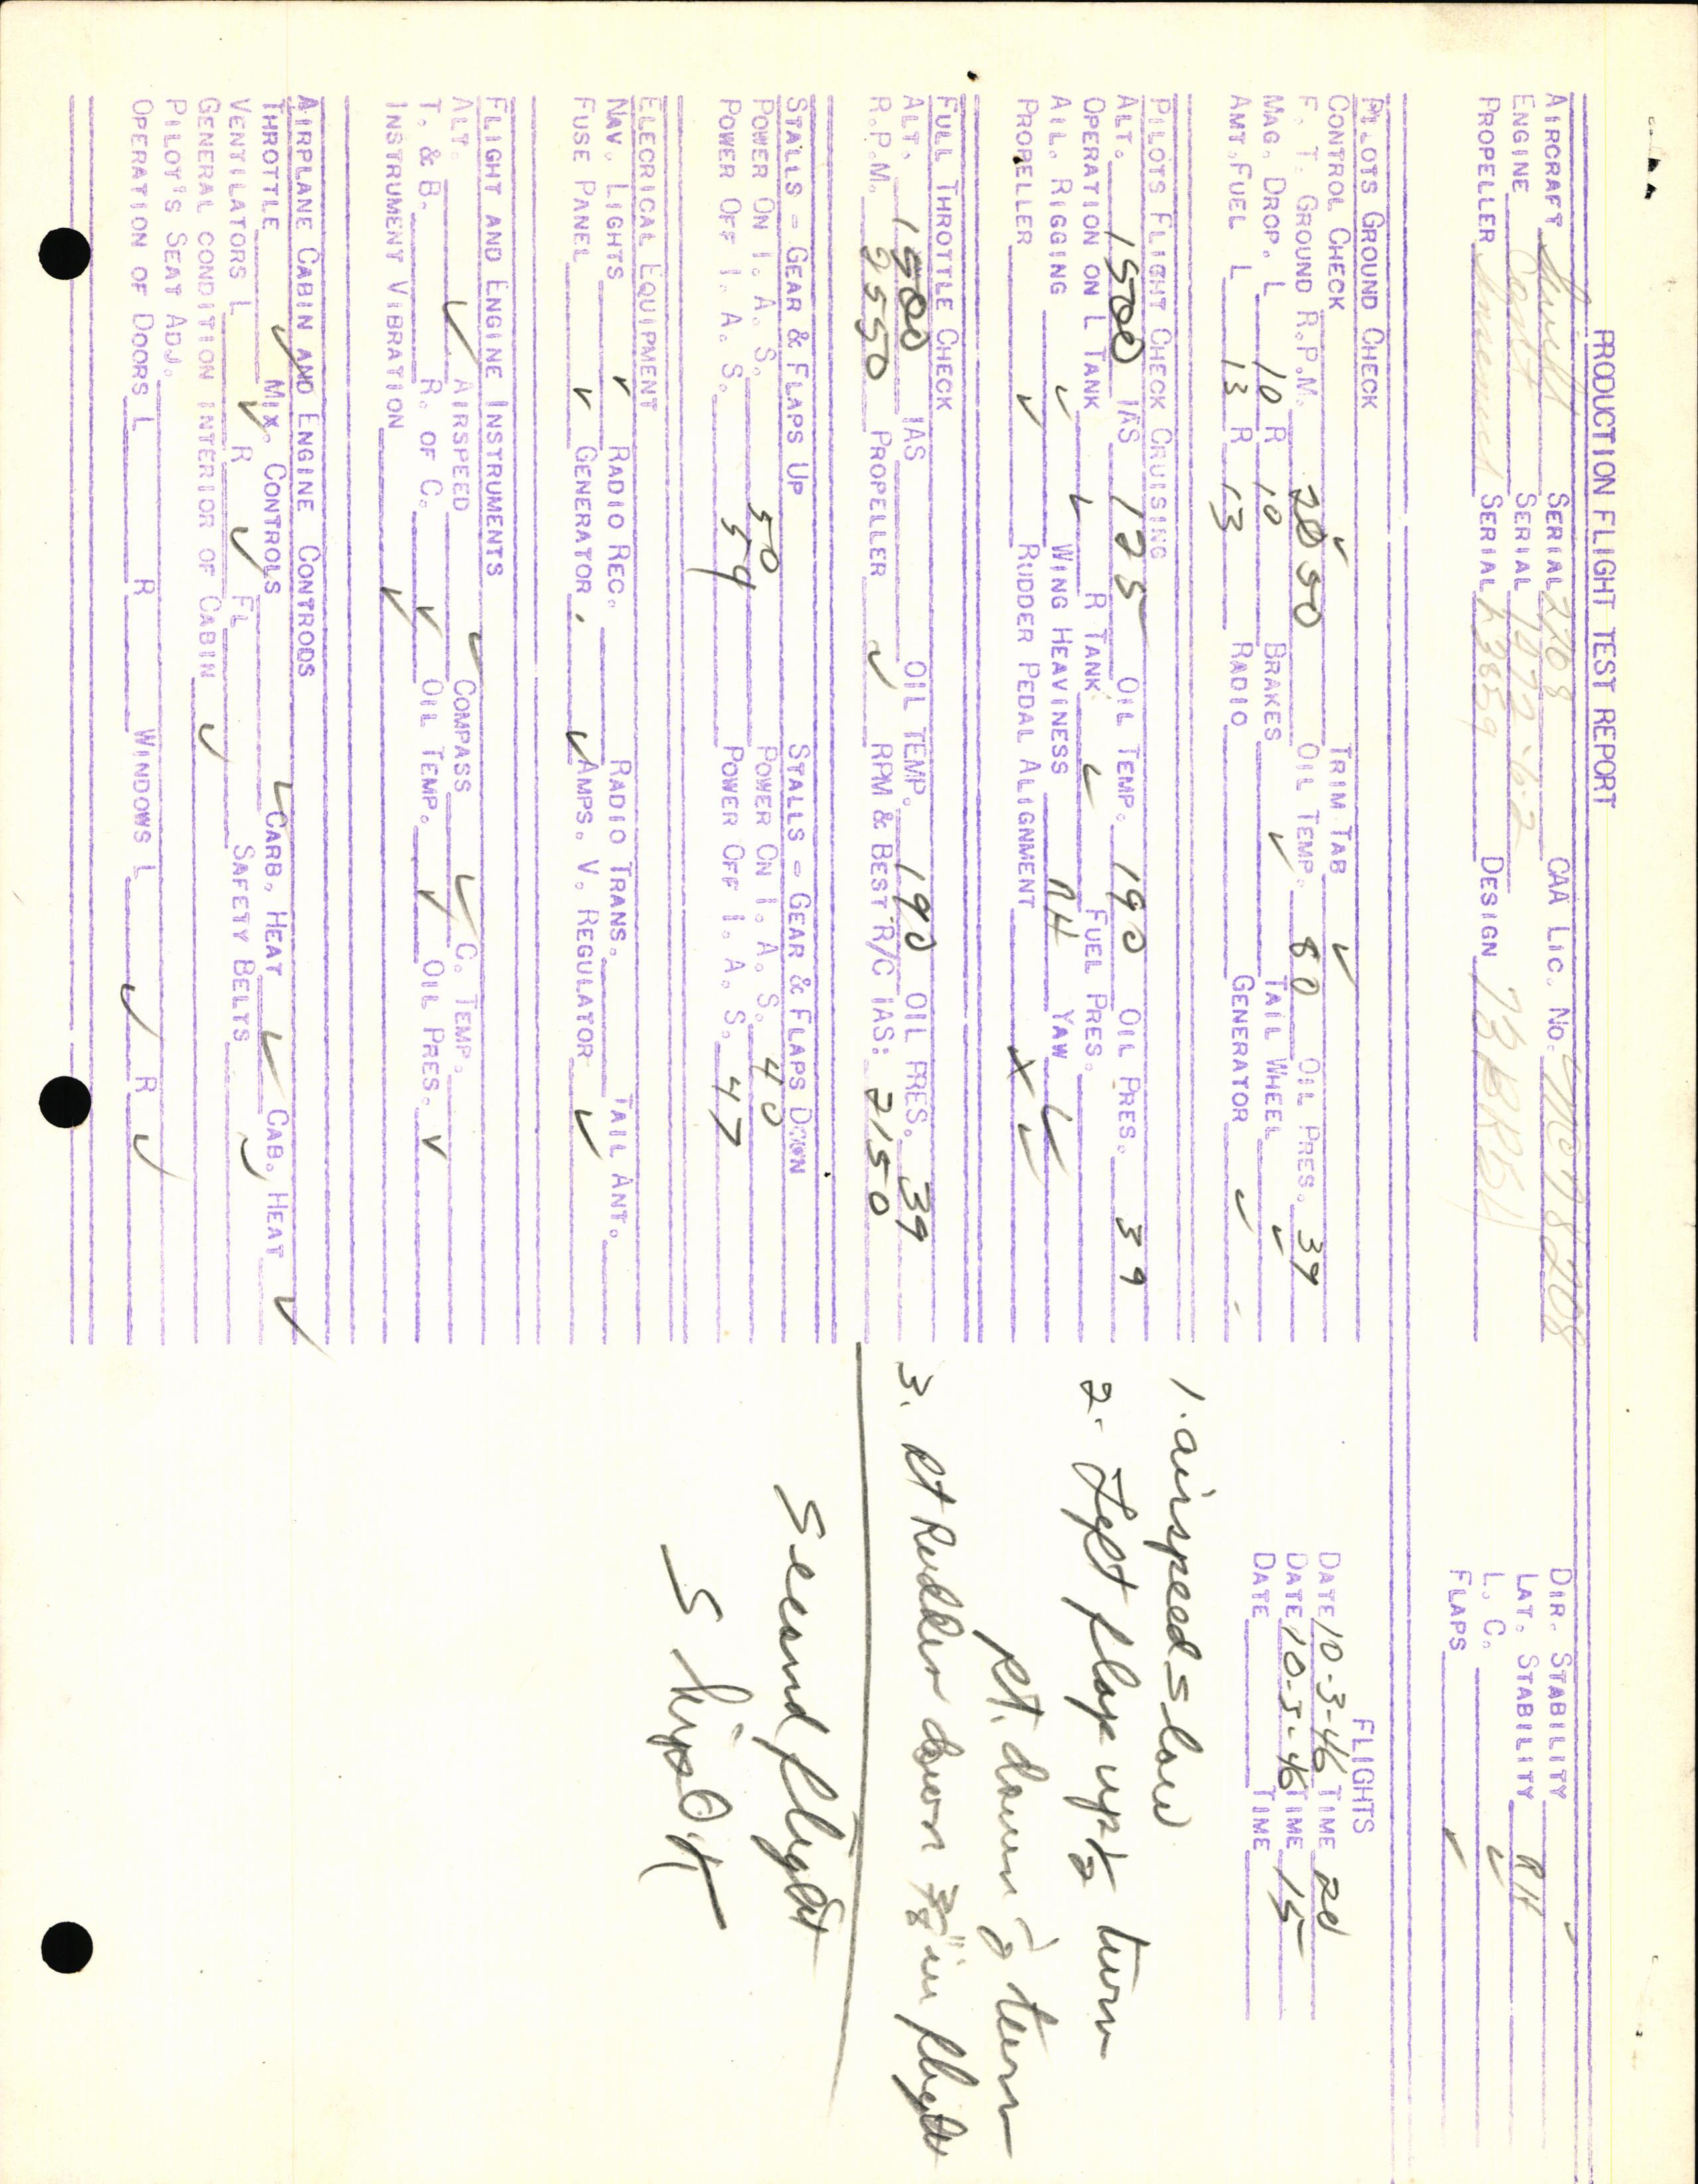 PRODUCTION FLIGHT TEST REPORT
AIRCRAFT SERIAL 2208 CAA LIC. NO.
ENGINE SERIAL
PROPELLER SERIAL DESIGN
DIR. STABILITY ✓
LAT. STABILITY RH
L. C. ✓
FLAPS ✓
PILOTS GROUND CHECK
CONTROL CHECK ✓ TRIM TAB ✓
F. T. GROUND R.P.M. 2050 OIL TEMP. 80 OIL PRES. 39
MAG. DROP. L 10 R 10 BRAKES ✓ TAIL WHEEL ✓
AMT. FUEL L 13 R 13 RADIO GENERATOR ✓
FLIGHTS
DATE 10-3-46 TIME
DATE 10-3-46 TIME 15
DATE TIME
PILOTS FLIGHT CHECK CRUISING
ALT. 1500 IAS 125 OIL TEMP. 190 OIL PRES. 39
OPERATION ON L TANK ✓ R TANK ✓ FUEL PRES.
AIL. RIGGING ✓ WING HEAVINESS YAW ✓
PROPELLER ✓ RUDDER PEDAL ALIGNMENT X ✓
FULL THROTTLE CHECK
ALT. 1500 IAS OIL TEMP. 190 OIL PRES. 39
R.P.M. 2550 PROPELLER ✓ RPM & BEST R/C IAS: 2150
STALLS = GEAR & FLAPS UP STALLS = GEAR & FLAPS DOWN
POWER ON I. A. S. 50 POWER ON I. A. S. 40
POWER OFF I. A. S. 54 POWER OFF I. A. S. 47
ELECRICAL EQUIPMENT
NAV. LIGHTS ✓ RADIO REC. RADIO TRANS. TAIL ANT.
FUSE PANEL ✓ GENERATOR ✓ AMPS. V. REGULATOR ✓
FLIGHT AND ENGINE INSTRUMENTS
ALT. ✓ AIRSPEED ✓ COMPASS ✓ C. TEMP.
T. & B. R. OF C. ✓ OIL TEMP. ✓ OIL PRES. ✓
INSTRUMENT VIBRATION ✓
AIRPLANE CABIN AND ENGINE CONTROLS
THROTTLE ✓ MIX. CONTROLS ✓ CARB. HEAT ✓ CAB. HEAT ✓
VENTILATORS L ✓ R ✓ FL SAFETY BELTS ✓
GENERAL CONDITION INTERIOR OF CABIN ✓
PILOT'S SEAT ADJ.
OPERATION OF DOORS L R WINDOWS L ✓ R ✓
1. airspeed slow
2- Left flap up ½ turn
Rt. down ½ turn
3. Rt Rudder down ⅜" in flight
Second flight
Ship OK